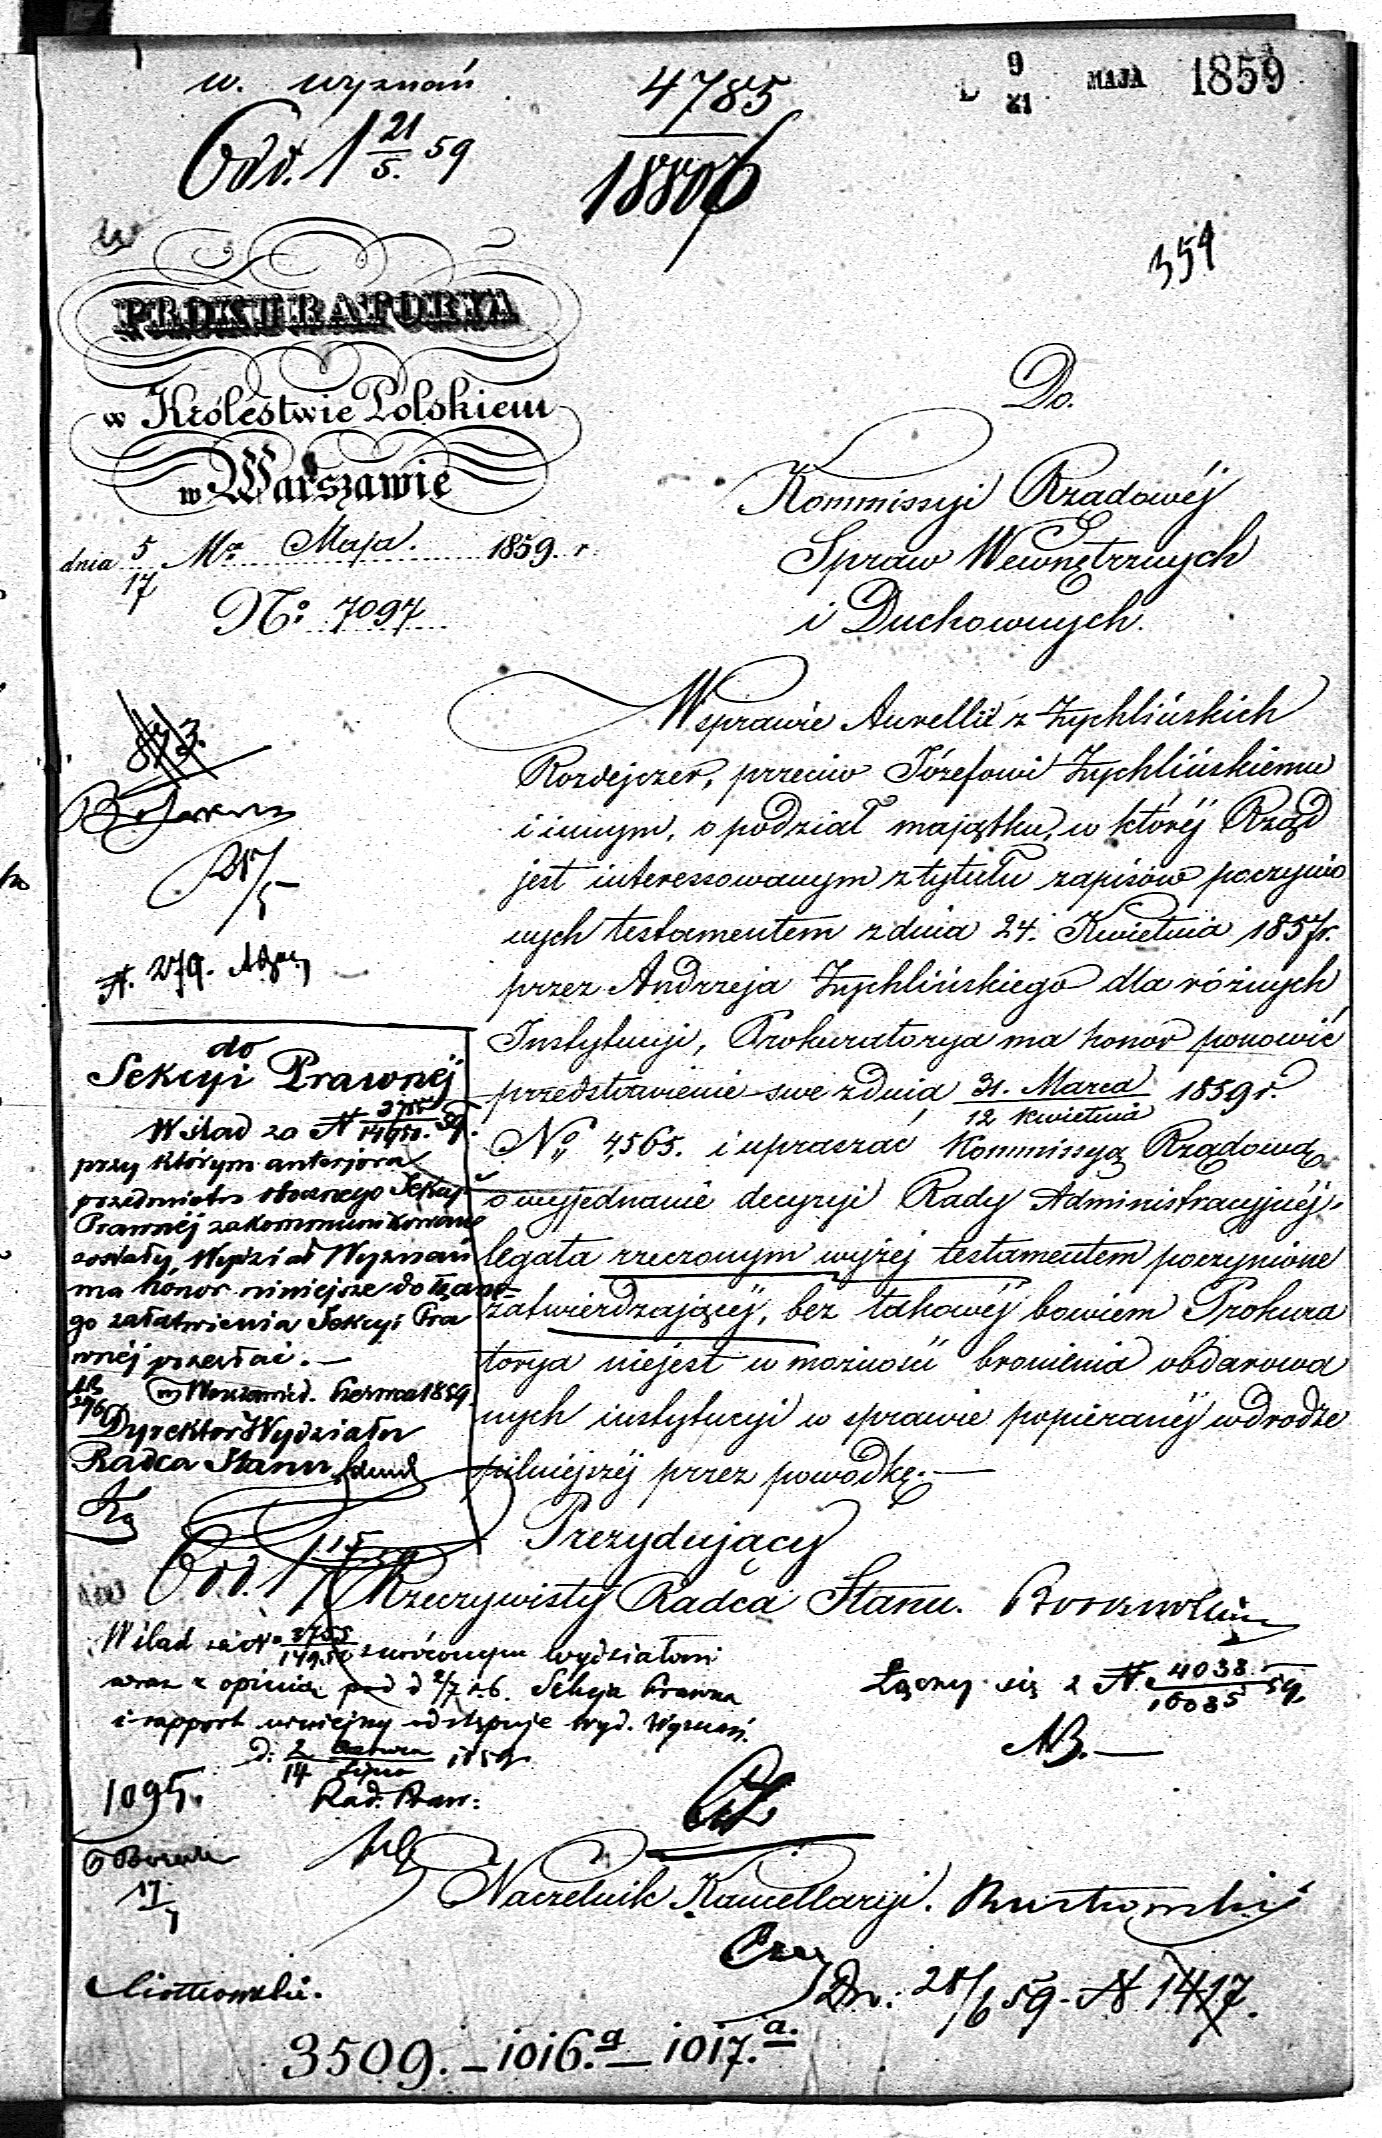 w. wyznań
4785
18806
D 9/21 MAJA 1859
Odd. 1 21/5. 59
354
PROKURATORYA
w Królestwie Polskiem
w Warszawie
dnia 5/17 Mca Maja. 1859. r.
No. 7097
Do.
Kommissyi Rządowéj
Spraw Wewnętrznych
i Duchownych.
W sprawie Aurelii z Zychlińskich
Rozdejczer, przeciw Józefowi Zychlińskiemu
i innym, o podział majątku, w któréj Rząd
jest interessowanym z tytułu zapisów poczynio
nych testamentem z dnia 24. Kwietnia 1857r.
przez Andrzeja Zychlińskiego dla różnych
Instytucyi, Prokuratorya ma honor ponowić
przedstawienie swe z dnia 31. Marca / 12 Kwietnia 1859 r.
No. 4,565. i upraszać Kommissyą Rządową
o wyjednanie decyzyi Rady Administracyjnéj,
legata rzeczonym wyżéj testamentem poczynione
zatwierdzającéj, bez takowéj bowiem Prokura
torya niejest w możności bronienia obdarowa
nych instytucyi w sprawie popieranéj w drodze
pilniejszéj przez powodkę.
Prezydujący
Rzeczywisty Radca Stanu.
873.
21/5
N. 279.
do
Sekcyi Prawnéj
W ślad za N 3755/14950. 59.
przy którym anteriora
przedmiotu obecnego Sekcyi
Prawnéj zakommunikowane
zostały, Wydział Wyznań
ma honor niniejsze do łączne
go załatwienia Sekcyi Pra
wnéj przesłać.
w Warszawie d. Czerwca 1859.
Dyrektor Wydziału
Radca Stanu
Odd. 1 15/7 59
W ślad za N 3755/14950 zwróconym wydziałowi
wraz z opinią pod d 2/7 r. b. Sekcya Prawna
i rapport niniejszy odstępuje Wyd. Wyznań.
D. 2 Czerwca / 14 Lipca 1859
Rad. Praw:
Łączy się z N. 4038/16085 59.
AB.
1095.
17/7
Naczelnik Kancellaryi.
Dn. 28/6 59. N 1417.
3509. – 1016.a – 1017.a.